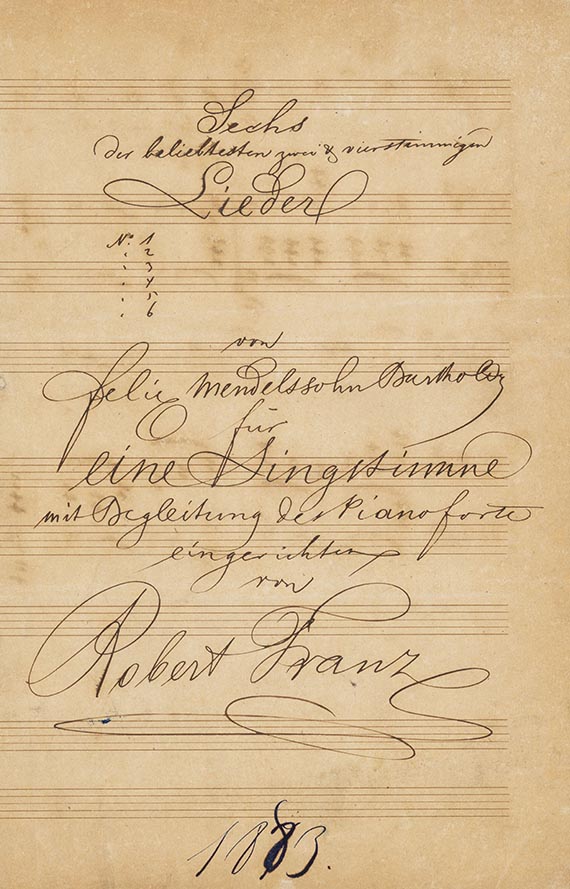 Sechs
der beliebtesten zwei & vierstimmigen
Lieder
No. 1
" 2
" 3
" 4
" 5
" 6
von
Felix Mendelssohn Bartholdy
für
eine Singstimme
mit Begleitung des Pianoforte
eingerichtet
von
Robert Franz
1883.